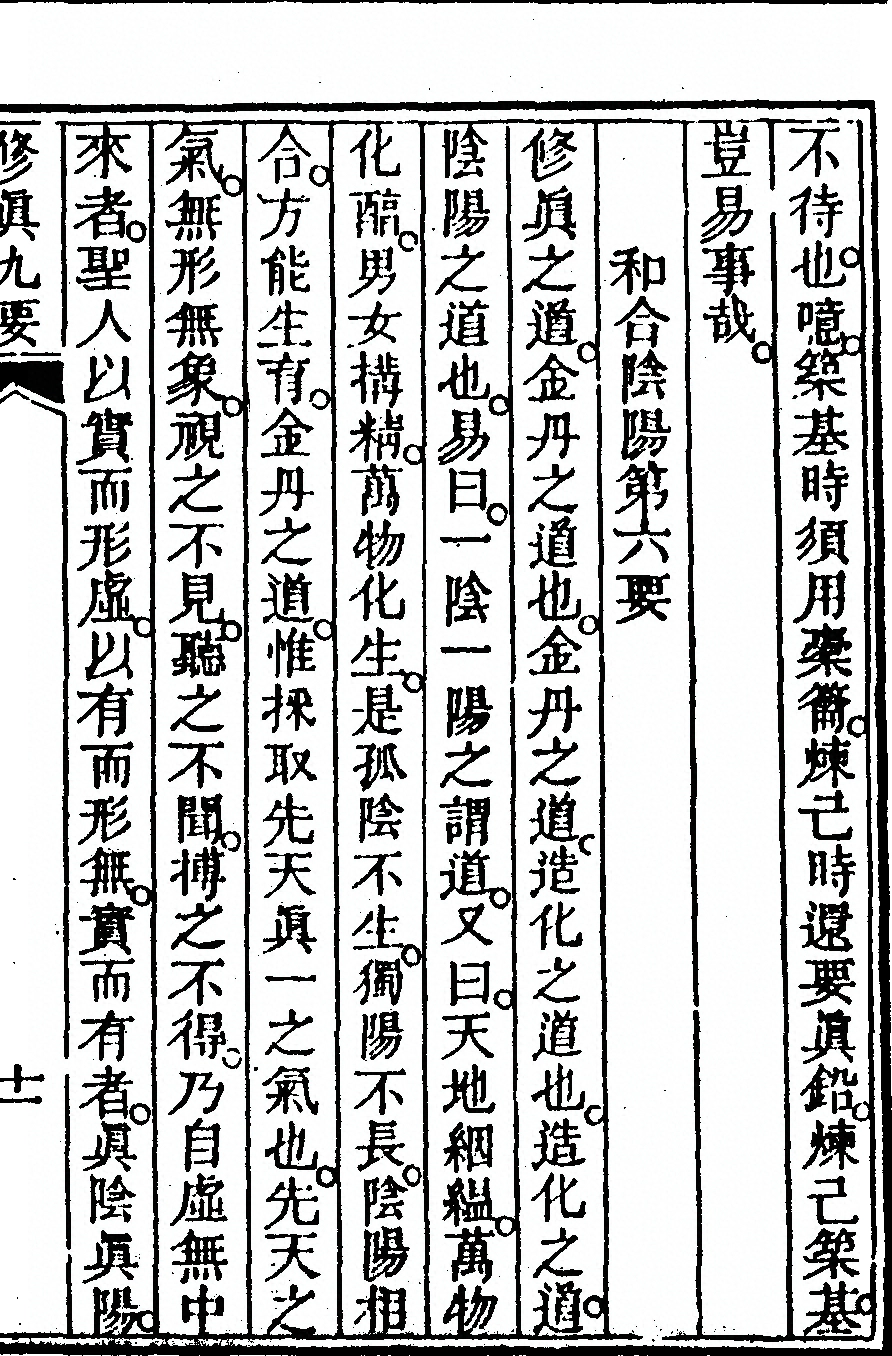 不待也。噫。築基時須用橐籥。煉己時還要眞鉛。煉己築基。
豈易事哉。
和合陰陽第六要
修眞之道。金丹之道也。金丹之道。造化之道也。造化之道。
陰陽之道也。易曰。一陰一陽之謂道。又曰。天地絪縕。萬物
化醕。男女搆精。萬物化生。是孤陰不生。獨陽不長。陰陽相
合。方能生有。金丹之道。惟採取先天眞一之氣也。先天之
氣。無形無象。視之不見。聽之不聞。搏之不得。乃自虛無中
來者。聖人以實而形虛。以有而形無。實而有者。眞陰眞陽。
修眞九要
十一